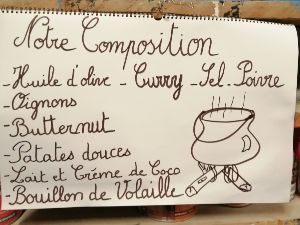 Notre Composition
-Huile d'olive - Curry - Sel - Poivre
-Oignons
-Butternut
-Patates douces
-Lait et Crème de Coco
-Bouillon de Volaille